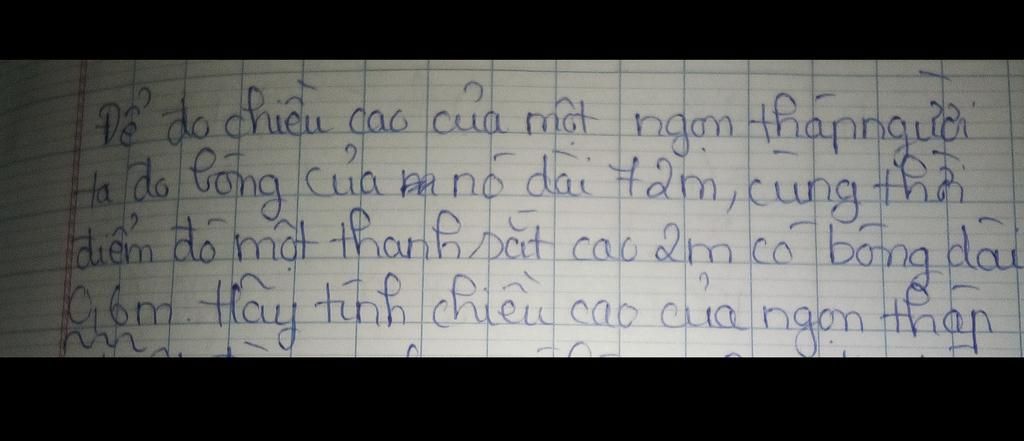 Để đo chiều cao của một ngọn tháp người
ta đo bóng của nó dài 72m, cùng thời
điểm đó một thanh sắt cao 2m có bóng dài
0,6m. Hãy tính chiều cao của ngọn tháp